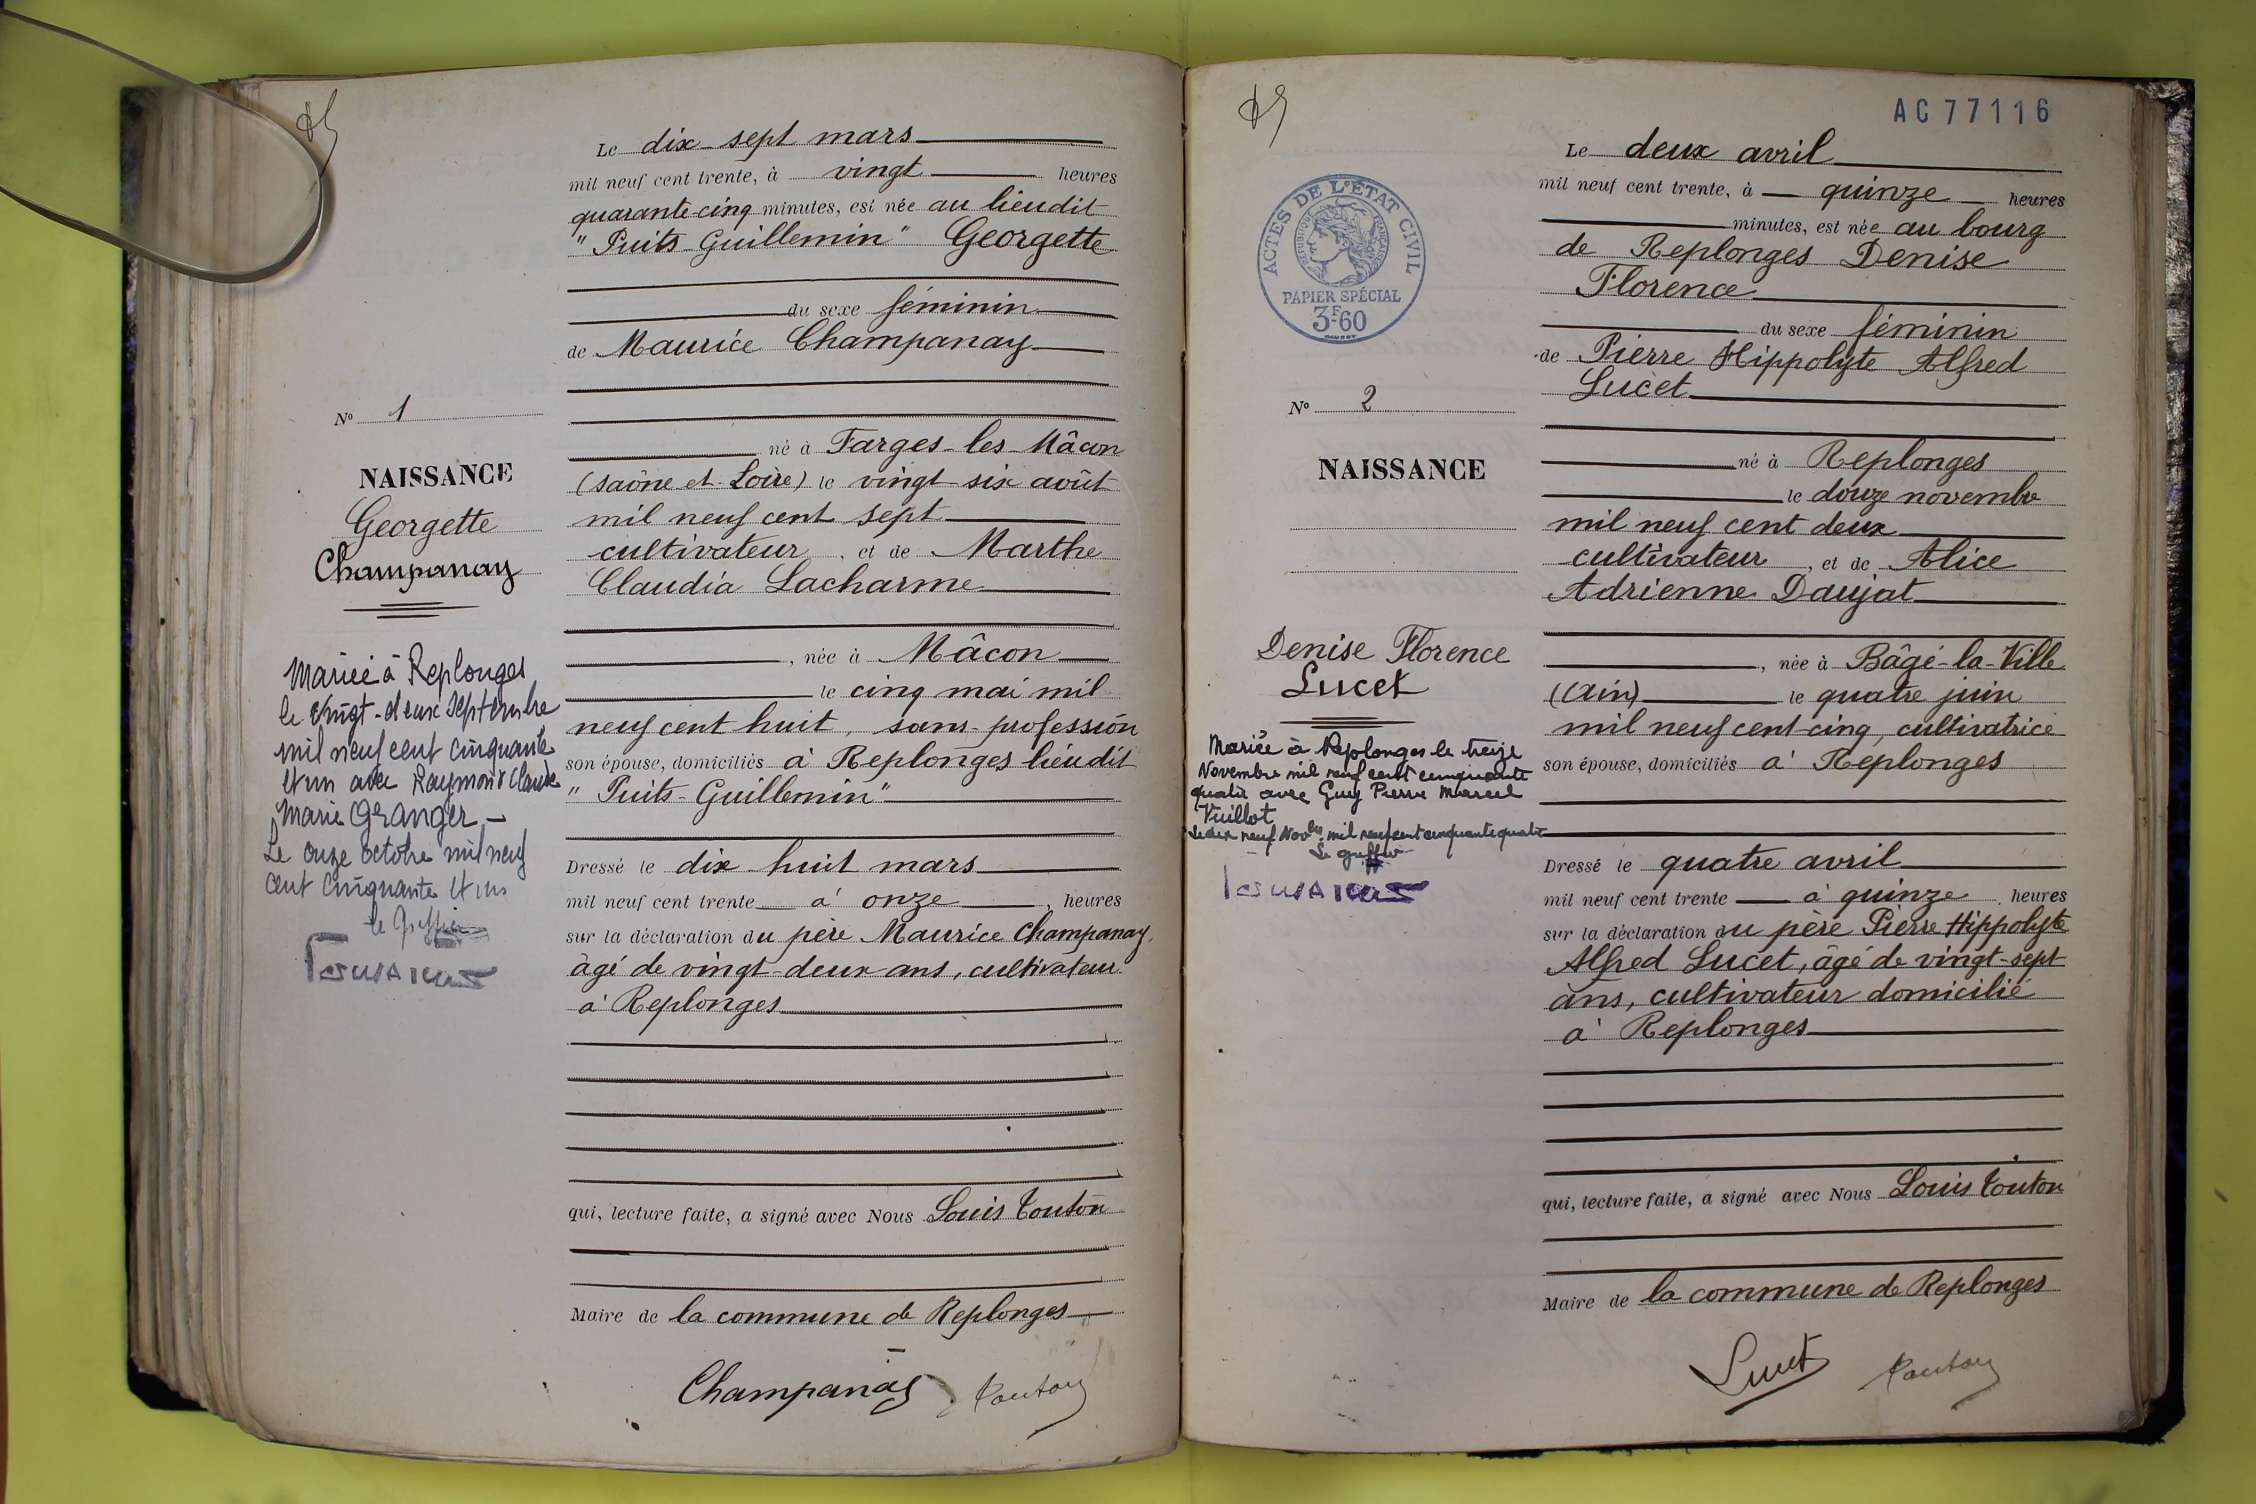 Le dix-sept mars
mil neuf cent trente, à vingt heures
quarante-cinq minutes, est née au lieudit
"Puits-Guillemin" Georgette
du sexe féminin
de Maurice Champanay
né à Farges-les-Mâcon
(Saône et Loire) le vingt-six août
mil neuf cent sept
cultivateur, et de Marthe
Claudia Lacharme
, née à Mâcon
le cinq mai mil
neuf cent huit, sans profession
son épouse, domiciliés à Replonges lieudit
"Puits-Guillemin"
Dressé le dix-huit mars
mil neuf cent trente à onze, heures
sur la déclaration du père Maurice Champanay,
âgé de vingt-deux ans, cultivateur
à Replonges
qui, lecture faite, a signé avec Nous Louis Touton
Maire de la commune de Replonges
Champanay Touton
No 1
NAISSANCE
Georgette
Champanay
Mariée à Replonges
le vingt-deux septembre
mil neuf cent cinquante
et un avec Raymond Claude
Marie Granger
Le onze octobre mil neuf
cent cinquante et un
le Greffier
AC 77116
Le deux avril
mil neuf cent trente, à quinze heures
minutes, est née au bourg
de Replonges Denise
Florence
du sexe féminin
de Pierre Hippolyte Alfred
Lucet
né à Replonges
le douze novembre
mil neuf cent deux
cultivateur, et de Alice
Adrienne Daujat
, née à Bâgé-la-Ville
(Ain) le quatre juin
mil neuf cent-cinq, cultivatrice
son épouse, domiciliés à Replonges
Dressé le quatre avril
mil neuf cent trente à quinze heures
sur la déclaration du père Pierre Hippolyte
Alfred Lucet, âgé de vingt-sept
ans, cultivateur domicilié
à Replonges
qui, lecture faite, a signé avec Nous Louis Touton
Maire de la commune de Replonges
Lucet Touton
ACTES DE L'ÉTAT CIVIL
RÉPUBLIQUE FRANÇAISE
PAPIER SPÉCIAL
3F60
No 2
NAISSANCE
Denise Florence
Lucet
Mariée à Replonges le treize
Novembre mil neuf cent cinquante
quatre avec Guy Pierre Marcel
Vuillot
Le dix neuf Novbre mil neuf cent cinquante quatre
Le greffier